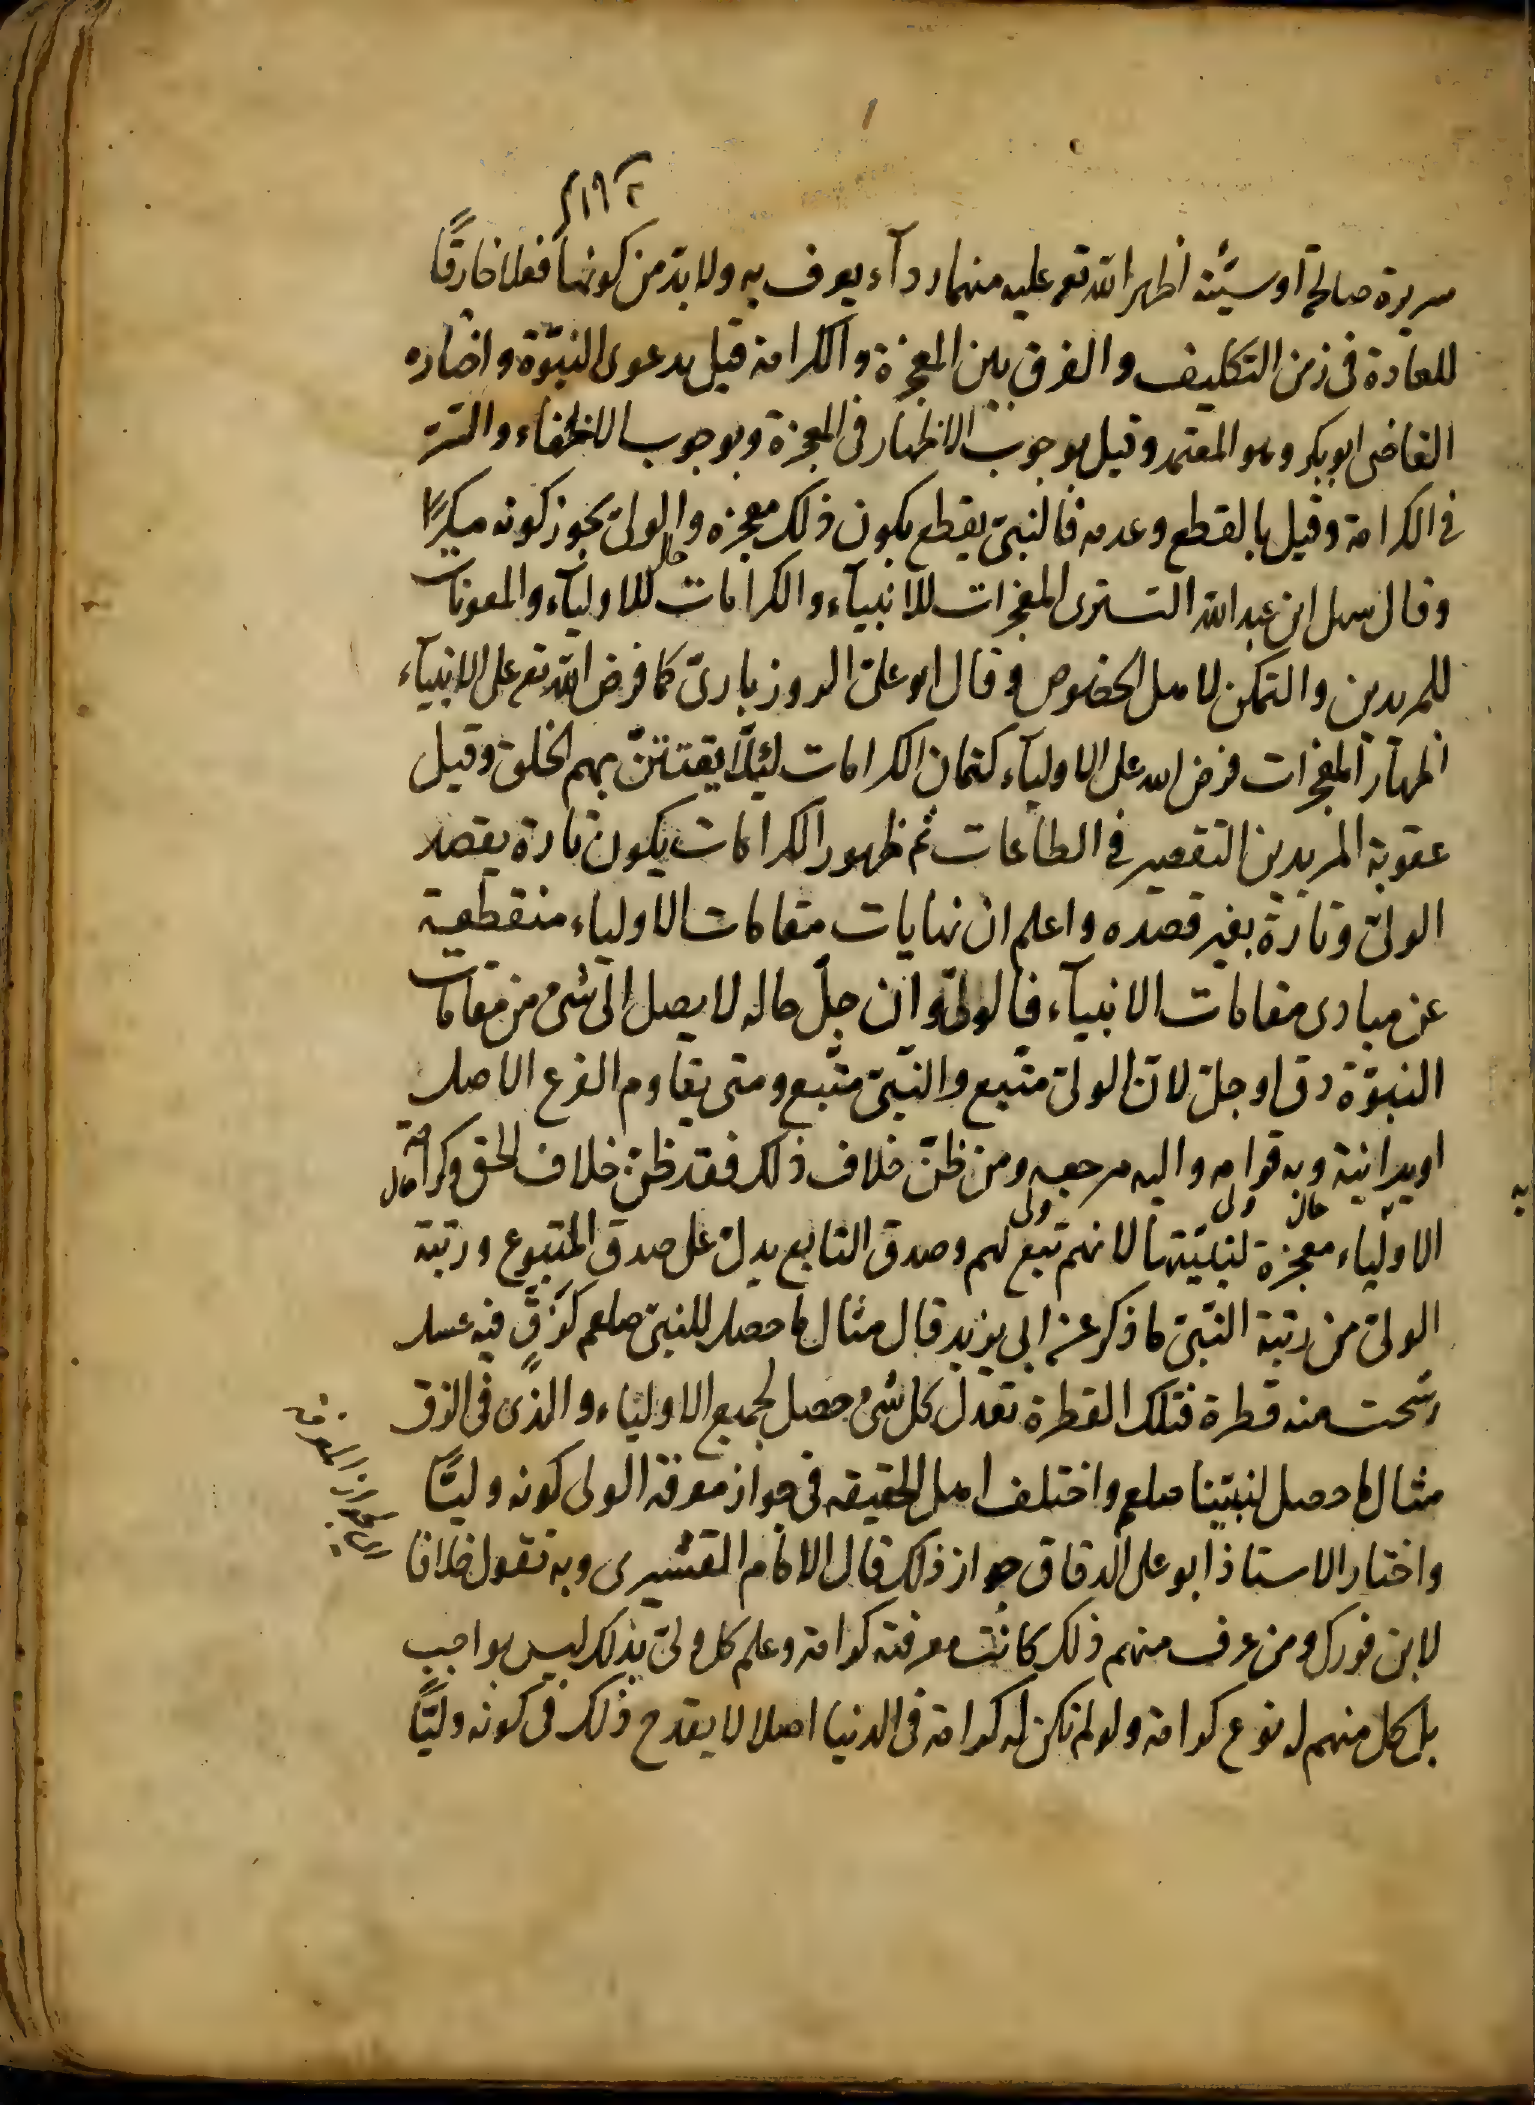 سريرة صالحة اوسيئة اظهر الله تع عليه منهما ردآء يعرف به ولا بدّ من كونها فعلا خارقًا
للعادة فى زمن التكليف والفرق بين المعجزة والكرامة قيل بدعوى النبوّة واختاره
القاضى ابوبكر وهو المعتمد وقيل بوجوب الاظهار فى المعجزة وبوجوب الاخفاء والتستر
فى الكرامة وقيل بالقطع وعدمه فالنبىّ يقطع بكون ذلك معجزه والولىّ يجوز كونه مكرًا
وقال سهل ابن عبد الله التسترى المعجزات للانبيآء والكرامات للاوليآء والمعونات
للمريدين والتمكن لاهل الخصوص وقال ابو علىّ الروزبارىّ كما فرض الله تع على الانبيآء
اظهار المعجزات فرض الله على الاوليآء كتمان الكرامات ليئلّا يفتتنّ بهم الخلق وقيل
عقوبة المريدين التقصير فى الطاعات ثم ظهور الكرامات يكون تارة بقصد
الولىّ وتارة بغير قصده واعلم ان نهايات مقامات الاولياء منقطعة
عن مبادى مقامات الانبيآء فالولىّ وان جلّ حاله لا يصل الى شئ من مقامات
النبوّة دق او جلّ لانّ الولىّ متبع والنبىّ متّبع ومتى يقاوم الفرع الاصل
او يدانية وبه قوامه واليه مرجعه ومن ظنّ خلاف ذلك فقد ظنّ خلاف الحق وكرامة
الاولياء معجزة لنبيّها لانهم تبع لهم وصدق التابع يدلّ على صدق المتبوع ورتبة
الولىّ من رتبة النبّى ما ذكر عن ابى يزيد قال مثال ما حصل للنبىّ صلعم كزقٍّ فيه عسل
رشحت منه قطرة فتلك القطرة تعدل كل شئ حصل لجميع الاولياء والذى فى الزق
مثال ما حصل لنبيّنا صلعم واختلف اهل الحقيقه فى جواز معرفة الولى كونه وليًّا
واختار الاستاذ ابو على الدقاق جواز ذلك قال الامام القشيرى وبه نقول خلافا
لابن فورك ومن عرف منهم ذلك كانت معرفته كرامة وعلم كل ولىّ بذلك ليس بواجب
بل كل منهم له نوع كرامة ولو لم تكن له كرامة فى الدنيا اصلا لا يقدح ذلك فى كونه وليًّا